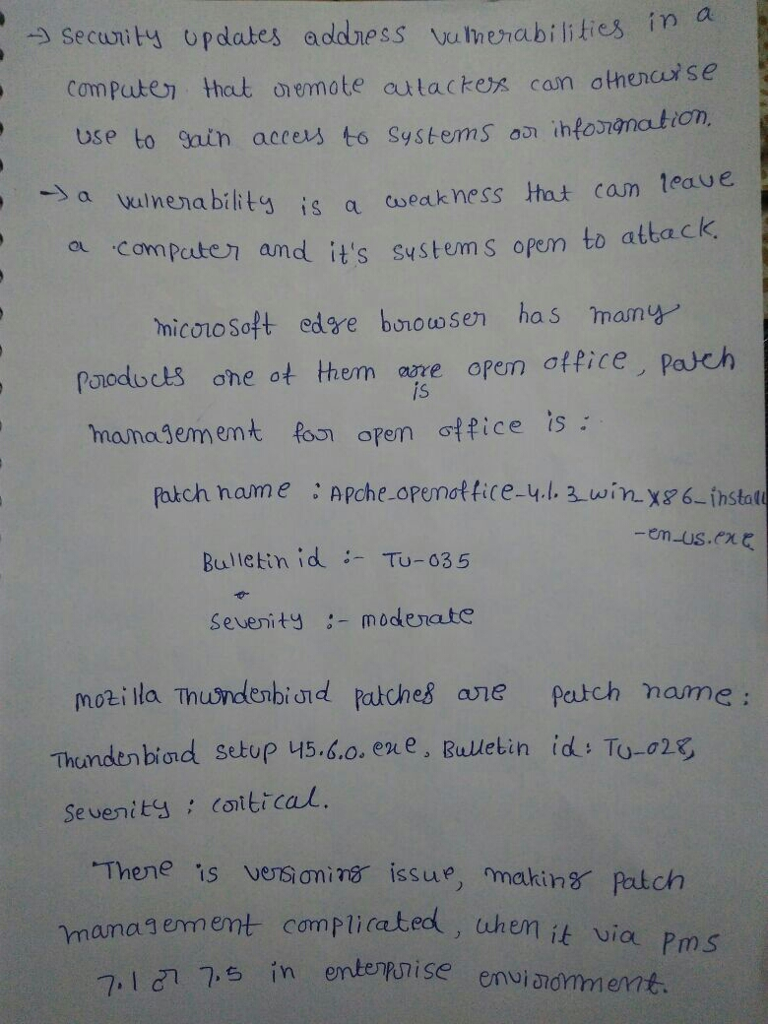 → Security updates address vulnerabilities in a
computer that remote attackers can otherwise
use to gain access to systems or information.
→ a vulnerability is a weakness that can leave
a computer and it's systems open to attack.
microsoft edge browser has many
products one of them are open office, patch
is
management for open office is :
patch name : Apche_openoffice_4.1.3_win_x86_install
-en_us.exe
Bulletin id :- TU-035
Severity :- moderate
mozilla Thunderbird patches are patch name :
Thunderbird setup 45.6.0.exe, Bulletin id : TU-028,
Severity : critical.
There is versioning issue, making patch
management complicated, when it via pms
7.1 or 7.5 in enterprise environment.